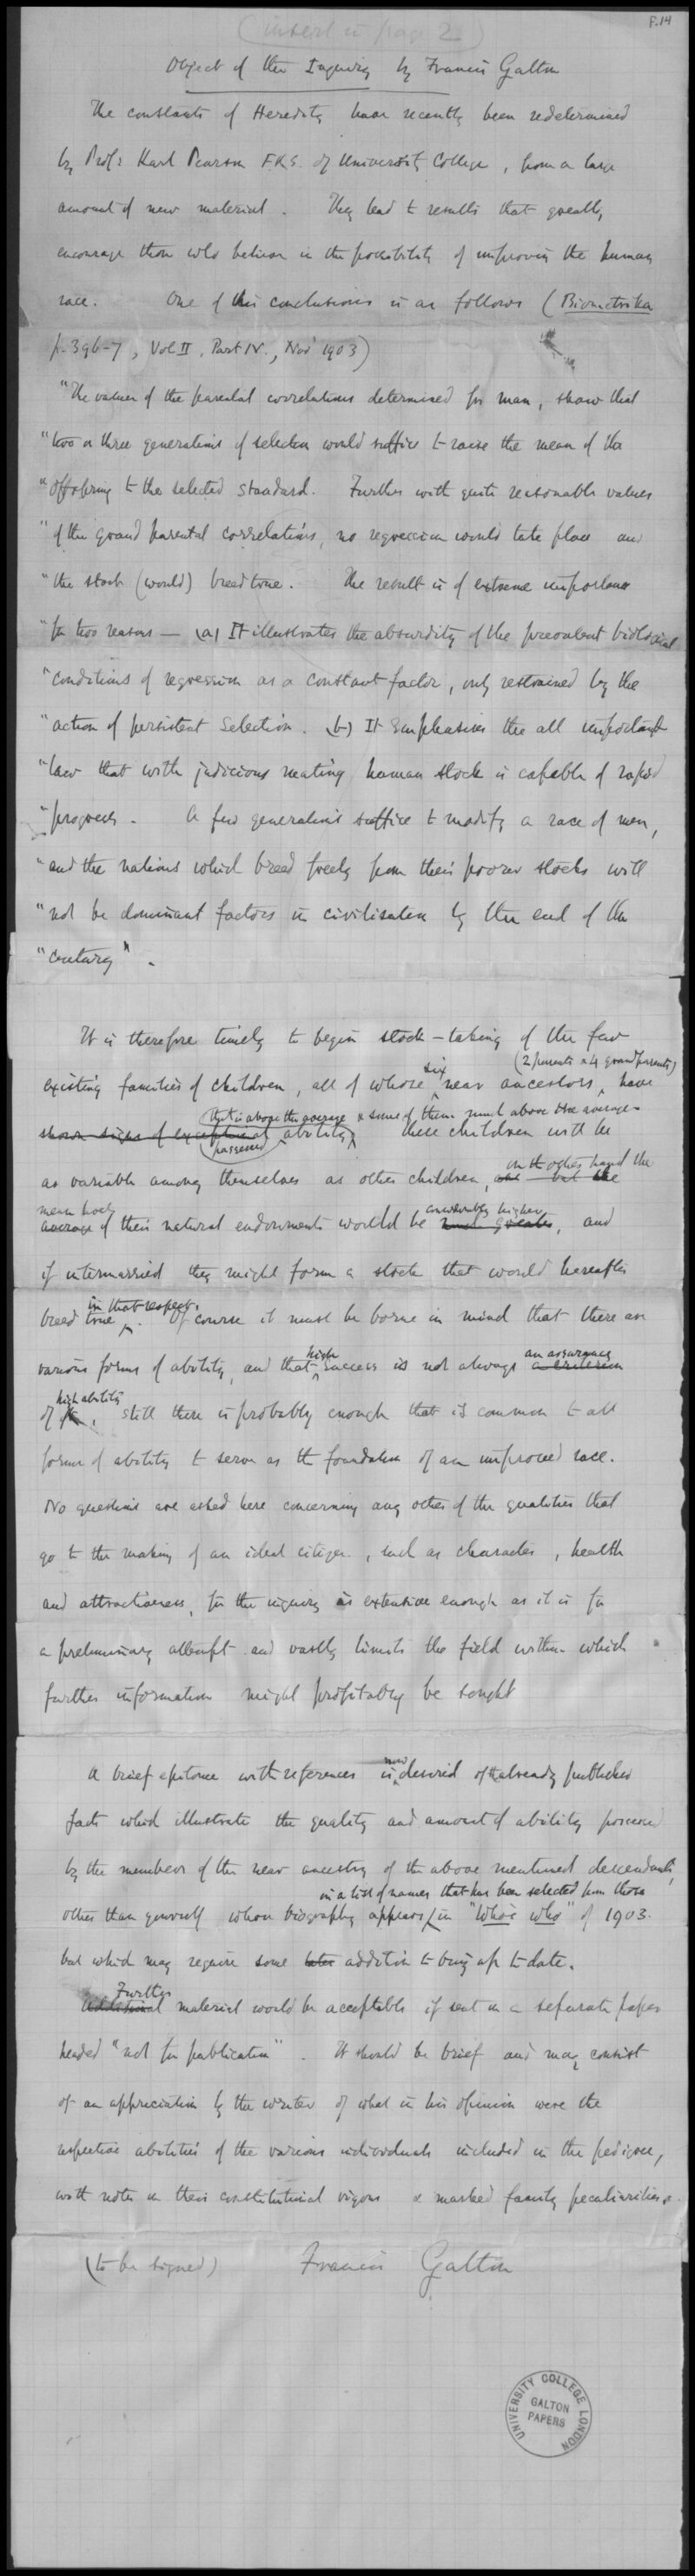 (insert in page 2)
F.14
Object of the Inquiry by Francis Galton
The constants of Heredity have recently been redetermined
by Prof: Karl Pearson F.R.S. of University College, from a large
amount of new material. They lead to results that greatly
encourage those who believe in the possibility of improving the human
race. One of his conclusions is as follows (Biometrika
p. 396-7, Vol II, Part IV., Nov 1903)
"The values of the parental correlations determined for man, show that
"two or three generations of selection would suffice to raise the mean of the
"offspring to the selected standard. Further with quite reasonable values
"of the grand parental correlations, no regression would take place and
"the stock (would) breed true. The result is of extreme importance
"for two reasons — (a) It illustrates the absurdity of the prevalent biological
"conditions of regression as a constant factor, only restrained by the
"action of persistent selection. (b) It emphasises the all important
"law that with judicious mating human stock is capable of rapid
"progress. A few generations suffice to modify a race of men,
"and the nations which breed freely from their poorer stocks will
"not be dominant factors in civilisation by the end of the
"century".
It is therefore timely to begin stock-taking of the few
six (2 parents & 4 grandparents)
existing families of children, all of whose near ancestors, have
that is above the average & some of them much above the average
shown signs of exceptional ability. These children will be
possessed
as variable among themselves as other children, and but the
on the other hand the
mean level considerably higher
average of their natural endowments would be much greater, and
if intermarried they might form a stock that would hereafter
in that respect.
breed true. Of course it must be borne in mind that there are
high an assurance
various forms of ability, and that success is not always a criterion
high ability
of it, still there is probably enough that is common to all
forms of ability to serve as the foundation of an improved race.
No questions are asked here concerning any other of the qualities that
go to the making of an ideal citizen, such as character, health
and attractiveness, for the inquiry is extensive enough as it is for
a preliminary attempt and vastly limits the field within which
further information might profitably be sought
now
A brief epitome with references is desired of the already published
facts which illustrate the quality and amount of ability possessed
by the members of the near ancestry of the above mentioned descendants,
in a list of names that has been selected from those
other than yourself whose biography appears in "Who's who" of 1903.
but which may require some later addition to bring up to date.
Further
Additional material would be acceptable if sent on a separate paper
headed "not for publication". It should be brief and may consist
of an appreciation by the writer of what in his opinion were the
respective abilities of the various individuals included in the pedigree,
with notes on their constitutional vigour & marked family peculiarities.
(to be signed) Francis Galton
UNIVERSITY COLLEGE LONDON
GALTON
PAPERS